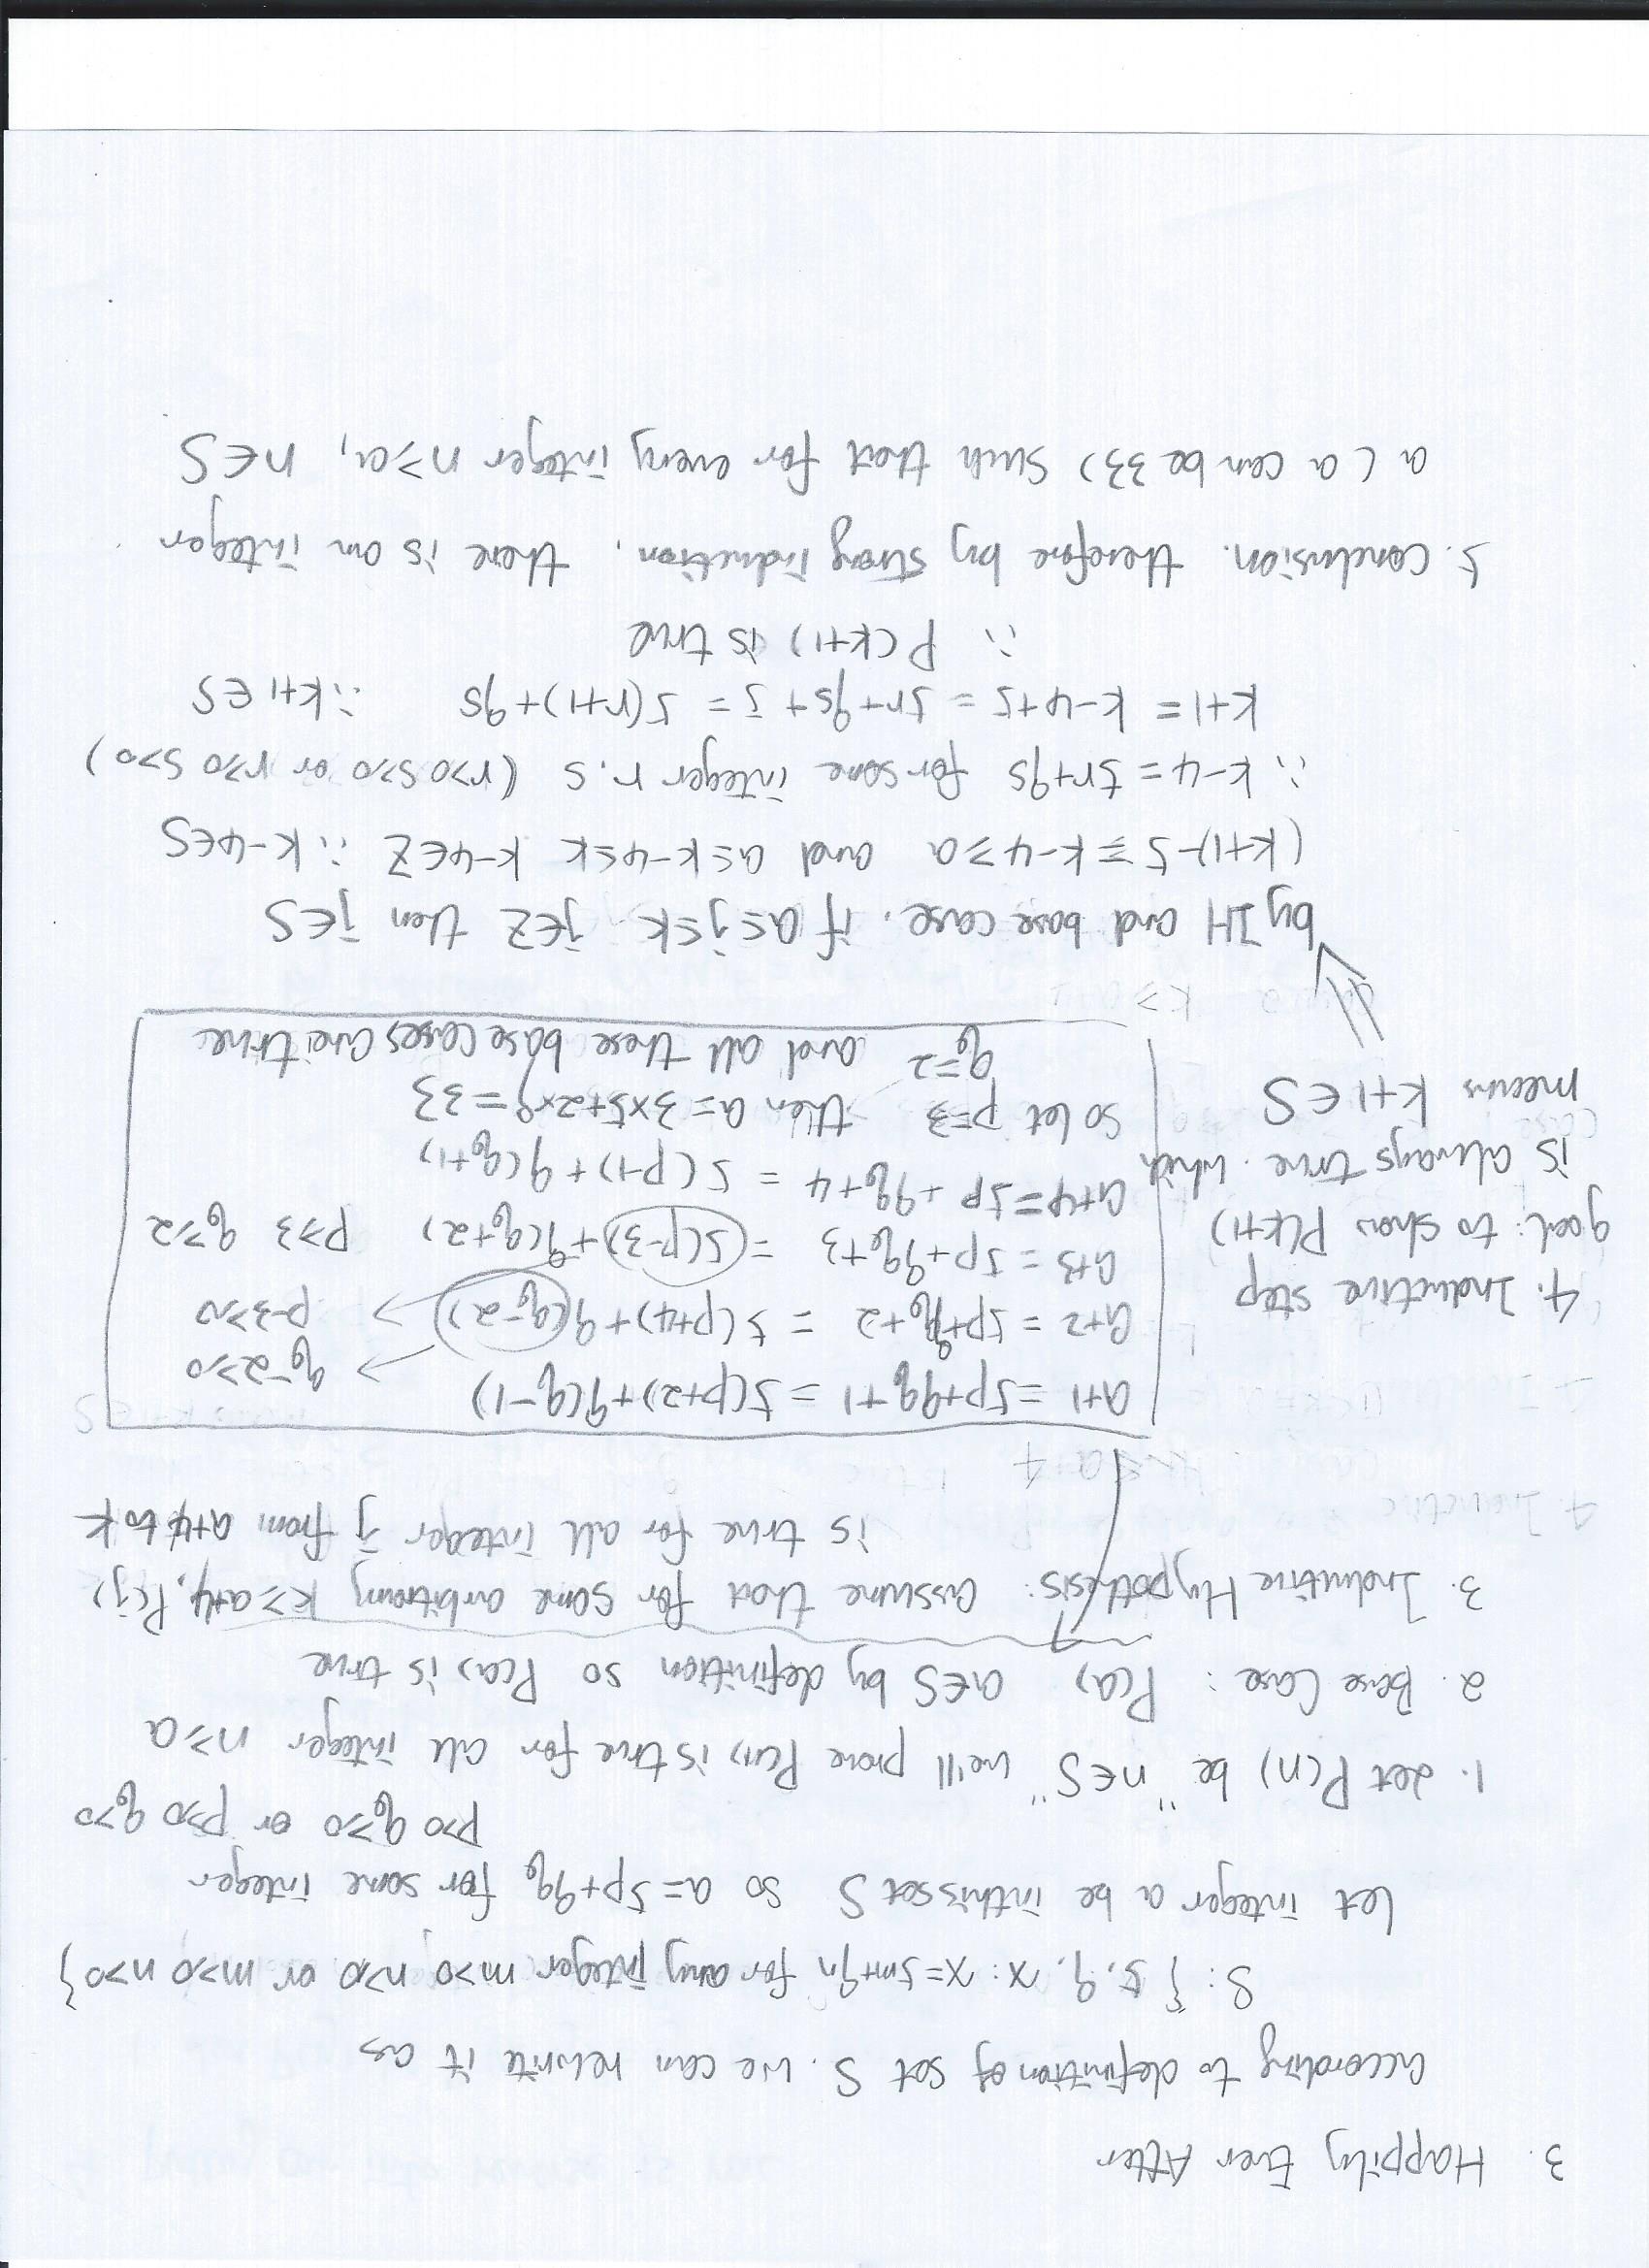 3. Happily Ever After
according to definition of set S. we can rewrite it as
S: { 5, 9, x: x=5m+9n for any integer m>0 n≥0 or m≥0 n>0 }
Let integer a be in this set S so a=5p+9q for some integer
p>0 q≥0 or p≥0 q>0
1. Let P(n) be "n∈S" we'll prove P(n) is true for all integer n≥a
2. Base Case: P(a) a∈S by definition so P(a) is true
3. Inductive Hypothesis: assume that for some arbitrary k≥a+4, P(j)
is true for all integer j from a+4 to k
a+1 =5p+9q+1 = 5(p+2)+9(q-1)
q-2≥0
a+2 = 5p+9q+2 = 5(p+4)+9(q-2)
p-3≥0
a+3 = 5p+9q+3 = 5(p-3)+9(q+2) p≥3 q≥2
a+4=5p+9q+4 = 5(p-1)+9(q+1)
so let p=3 then a=3×5+2×9=33
q=2 and all these base cases are true
4. Inductive step
goal: to show P(k+1)
is always true. which
means k+1∈S
by IH and base case. if a≤j≤k j∈Z then j∈S
(k+1)-5 = k-4≥a and a≤k-4≤k k-4∈Z ∴k-4∈S
∴ k-4=5r+9s for some integer r.s (r>0 s≥0 or r≥0 s>0)
k+1= k-4+5 = 5r+9s+5= 5(r+1)+9s ∴k+1∈S
∴ P(k+1) is true
5. Conclusion. therefore by strong induction. there is an integer
a (a can be 33) such that for every integer n≥a, n∈S